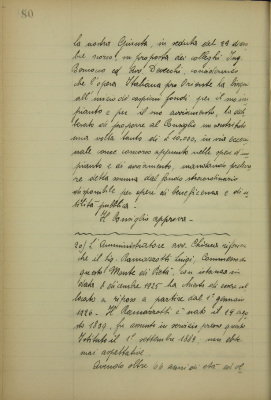 80
la nostra Giunta, in seduta del 29 dicem
bre scorso, su proposta dei colleghi Ing.
ed Avv. considerando
che l'opera Italiana pro Oriente ha bisogno
all'inizio di capienti fondi, per il suo im
pianto e per il suo avviamento, ha deli
berato di proporre al Consiglio un sussidio
una volta tanto di £ 10.000, in via eccezio
nale come concorso appunto nelle spese d'im
pianto e di avviamento,
re detta somma dal fondo straordinario
disponibile per opere di beneficenza e di u
tilità pubblica.
Il Consiglio approva.
20) L'Amministratore avv. Chiesa riferisce
che il Sig. Ramazzotti Luigi, Commesso di
questo Monte di Pietà, con istanza in
data 8 dicembre 1925 ha chiesto di essere col
locato a riposo a partire dal 1° gennaio
1926. Il Ramazzotti è nato il 19 ago
sto 1859, fu assunto in servizio presso questo
Istituto il 1° settembre 1883,
mai aspettative.
Avendo oltre 66 anni di età ed